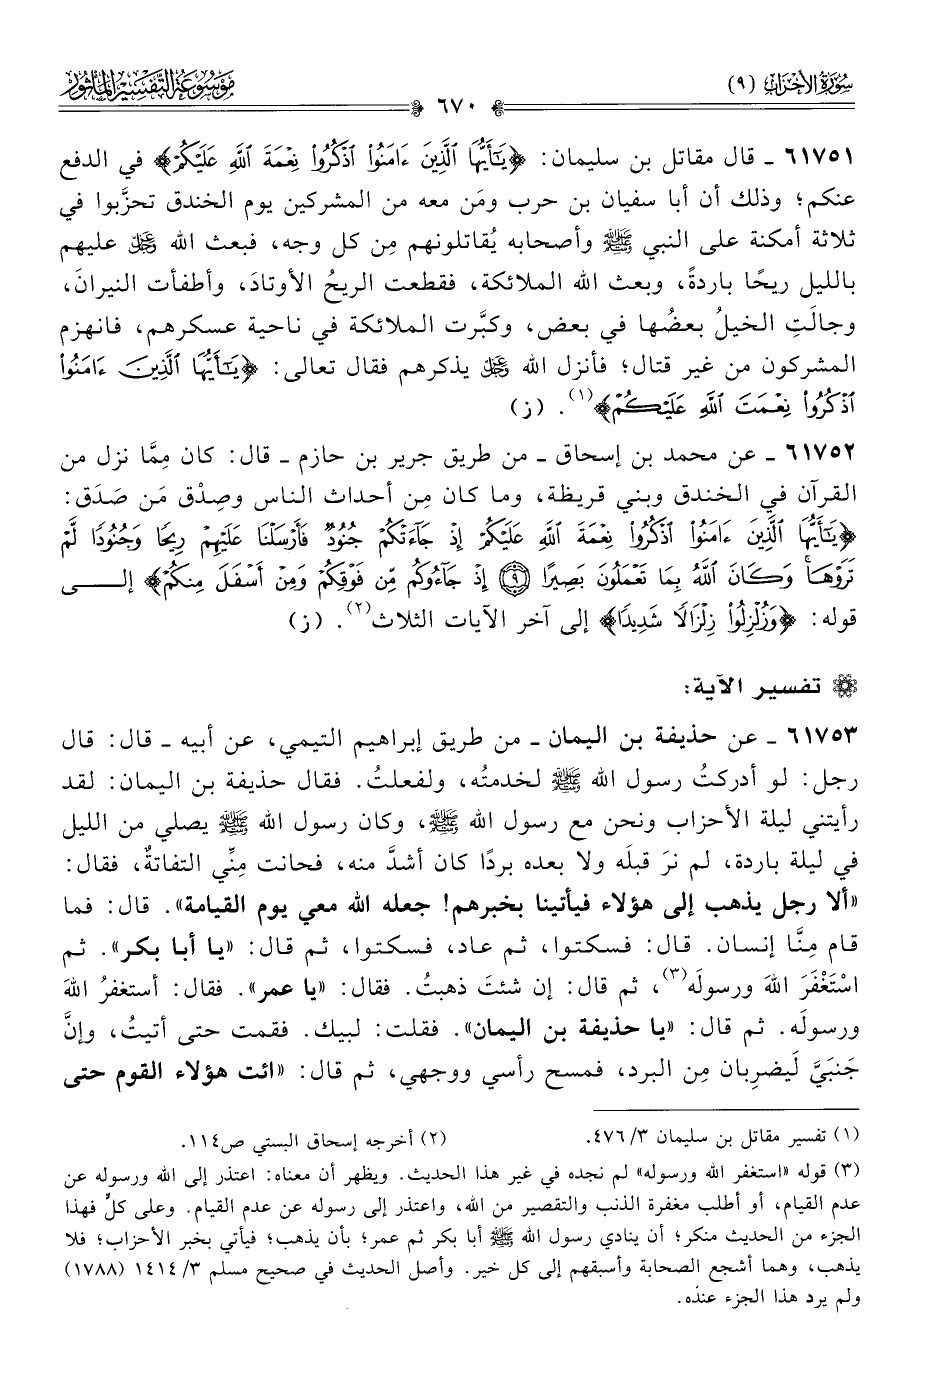 سُورَةُ الأَحْزَاب (٩)
٦٧٠
مَوْسُوعَة التَّفْسِير المَأْثُور
٦١٧٥١ ـ قال مقاتل بن سليمان: ﴿يَٰٓأَيُّهَا ٱلَّذِينَ ءَامَنُوا۟ ٱذْكُرُوا۟ نِعْمَةَ ٱللَّهِ عَلَيْكُمْ﴾ في الدفع
عنكم؛ وذلك أن أبا سفيان بن حرب ومَن معه من المشركين يوم الخندق تحزَّبوا في
ثلاثة أمكنة على النبي ﷺ وأصحابه يُقاتلونهم مِن كل وجه، فبعث الله ﷻ عليهم
بالليل ريحًا باردةً، وبعث الله الملائكة، فقطعت الريحُ الأوتادَ، وأطفأت النيرانَ،
وجالَتِ الخيلُ بعضُها في بعض، وكبَّرت الملائكة في ناحية عسكرهم، فانهزم
المشركون من غير قتال؛ فأنزل الله ﷻ يذكرهم فقال تعالى: ﴿يَٰٓأَيُّهَا ٱلَّذِينَ ءَامَنُوا۟
ٱذْكُرُوا۟ نِعْمَتَ ٱللَّهِ عَلَيْكُمْ﴾(١). (ز)
٦١٧٥٢ ـ عن محمد بن إسحاق ـ من طريق جرير بن حازم ـ قال: كان مِمَّا نزل من
القرآن في الخندق وبني قريظة، وما كان مِن أحداث الناس وصِدْق مَن صَدَق:
﴿يَٰٓأَيُّهَا ٱلَّذِينَ ءَامَنُوا۟ ٱذْكُرُوا۟ نِعْمَةَ ٱللَّهِ عَلَيْكُمْ إِذْ جَآءَتْكُمْ جُنُودٌ فَأَرْسَلْنَا عَلَيْهِمْ رِيحًا وَجُنُودًا لَّمْ
تَرَوْهَا ۚ وَكَانَ ٱللَّهُ بِمَا تَعْمَلُونَ بَصِيرًا ۝٩ إِذْ جَآءُوكُم مِّن فَوْقِكُمْ وَمِنْ أَسْفَلَ مِنكُمْ﴾ إلــــى
قوله: ﴿وَزُلْزِلُوا۟ زِلْزَالًا شَدِيدًا﴾ إلى آخر الآيات الثلاث(٢). (ز)
تفسير الآية:
٦١٧٥٣ ـ عن حذيفة بن اليمان ـ من طريق إبراهيم التيمي، عن أبيه ـ قال: قال
رجل: لو أدركتُ رسول الله ﷺ لخدمتُه، ولفعلتُ. فقال حذيفة بن اليمان: لقد
رأيتني ليلة الأحزاب ونحن مع رسول الله ﷺ، وكان رسول الله ﷺ يصلي من الليل
في ليلة باردة، لم نرَ قبلَه ولا بعده بردًا كان أشدَّ منه، فحانت مِنِّي التفاتةٌ، فقال:
«ألا رجل يذهب إلى هؤلاء فيأتينا بخبرهم! جعله الله معي يوم القيامة». قال: فما
قام مِنَّا إنسان. قال: فسكتوا، ثم عاد، فسكتوا، ثم قال: «يا أبا بكر». ثم
اسْتَغْفَرَ اللهَ ورسولَه(٣)، ثم قال: إن شئتَ ذهبتُ. فقال: «يا عمر». فقال: أستغفرُ اللهَ
ورسولَه. ثم قال: «يا حذيفة بن اليمان». فقلت: لبيك. فقمت حتى أتيتُ، وإنَّ
جَنبَيَّ لَيضرِبان مِن البرد، فمسح رأسي ووجهي، ثم قال: «ائت هؤلاء القوم حتى
(١) تفسير مقاتل بن سليمان ٣/ ٤٧٦. (٢) أخرجه إسحاق البستي ص١١٤.
(٣) قوله «استغفر الله ورسوله» لم نجده في غير هذا الحديث. ويظهر أن معناه: اعتذر إلى الله ورسوله عن
عدم القيام، أو أطلب مغفرة الذنب والتقصير من الله، واعتذر إلى رسوله عن عدم القيام. وعلى كلٍّ فهذا
الجزء من الحديث منكر؛ أن ينادي رسول الله ﷺ أبا بكر ثم عمر؛ بأن يذهب؛ فيأتي بخبر الأحزاب؛ فلا
يذهب، وهما أشجع الصحابة وأسبقهم إلى كل خير. وأصل الحديث في صحيح مسلم ٣/ ١٤١٤ (١٧٨٨)
ولم يرد هذا الجزء عنده.